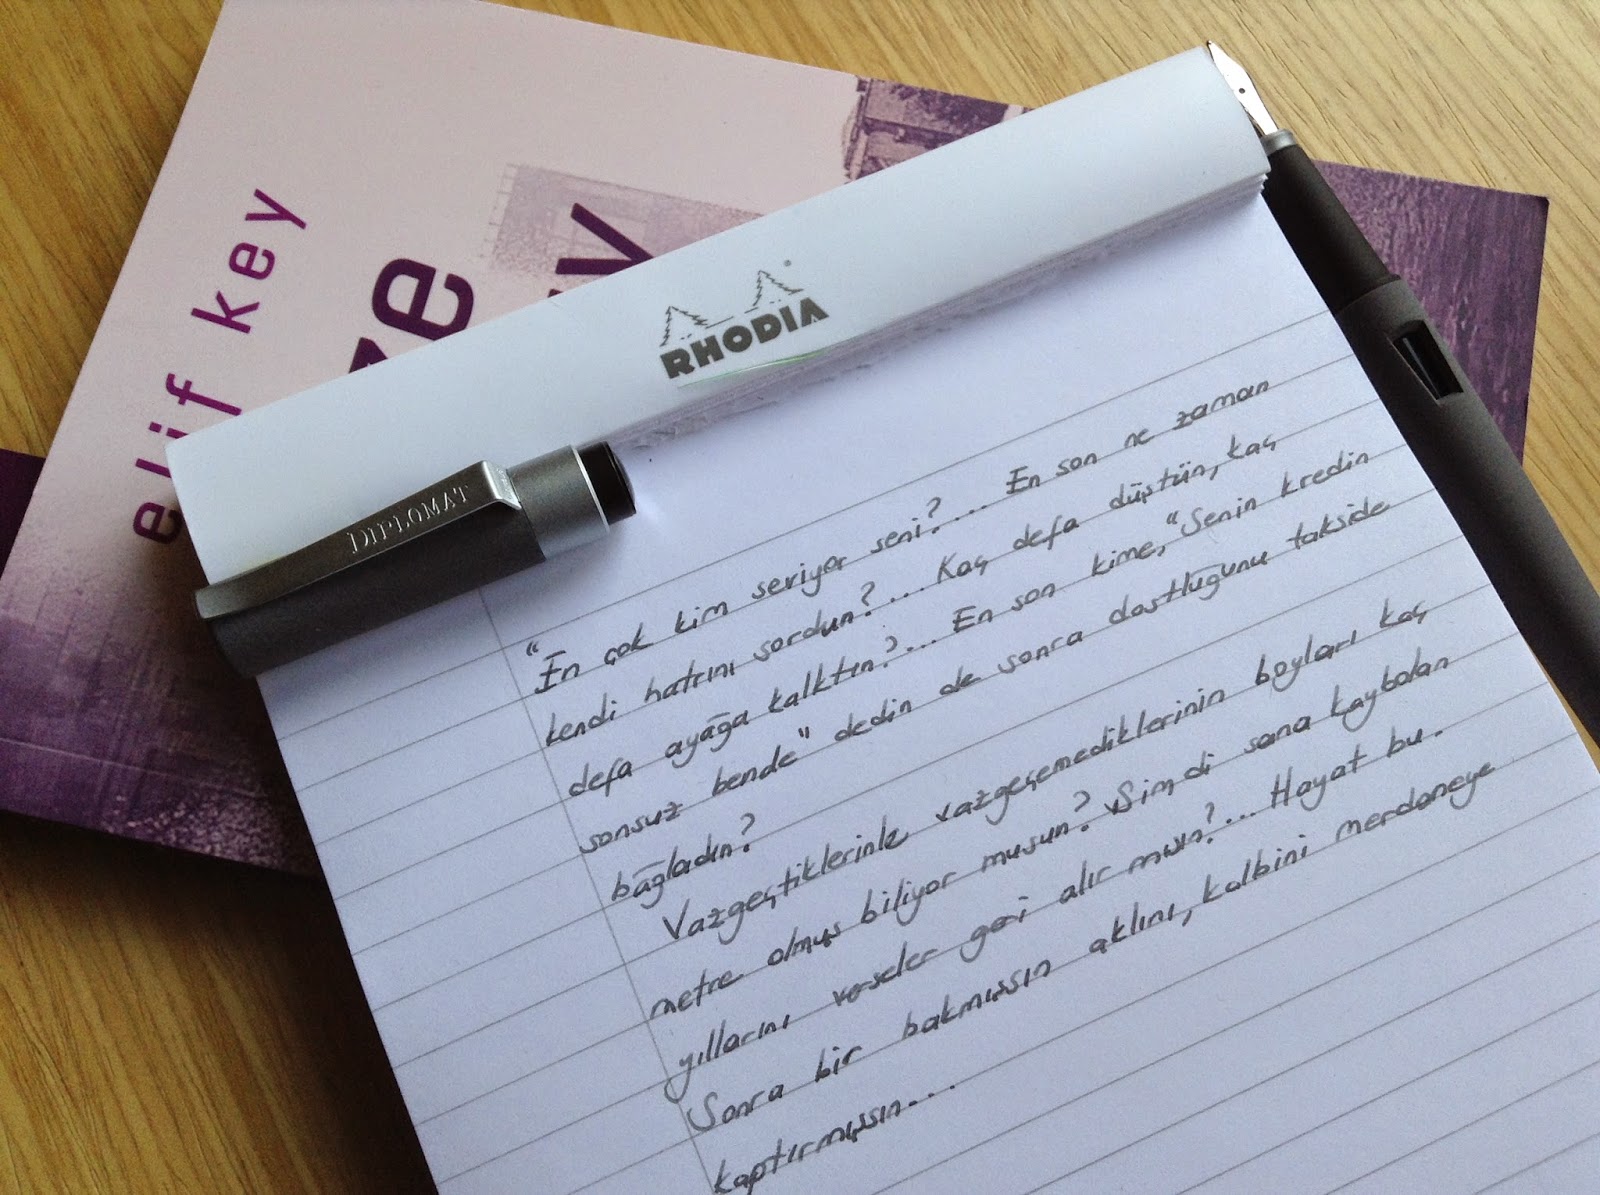 elif key
ze
RHODIA
DIPLOMAT
"En çok kim seviyor seni?... En son ne zaman
kendi hatrını sordun?... Kaç defa düştün, kaç
defa ayağa kalktın?... En son kime, "Senin kredin
sonsuz bende" dedin de sonra dostluğunu takside
bağladın?
Vazgeçtiklerinle vazgeçemediklerinin boyları kaç
metre olmuş biliyor musun? Şimdi sana kaybolan
yıllarını verseler geri alır mısın?... Hayat bu.
Sonra bir bakmışsın aklını, kalbini merdaneye
kaptırmışsın...